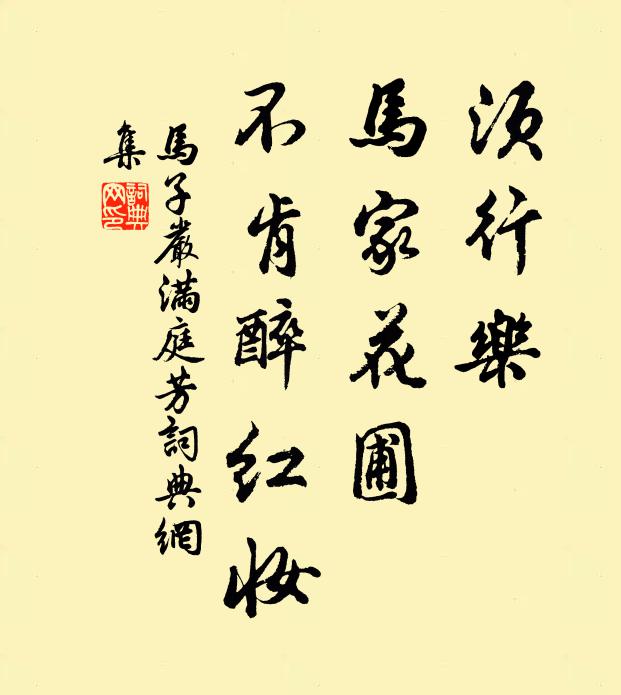 須行樂
馬家花圃
不肯醉紅妝
馬子嚴滿庭芳詞典網
集
詞典
网印